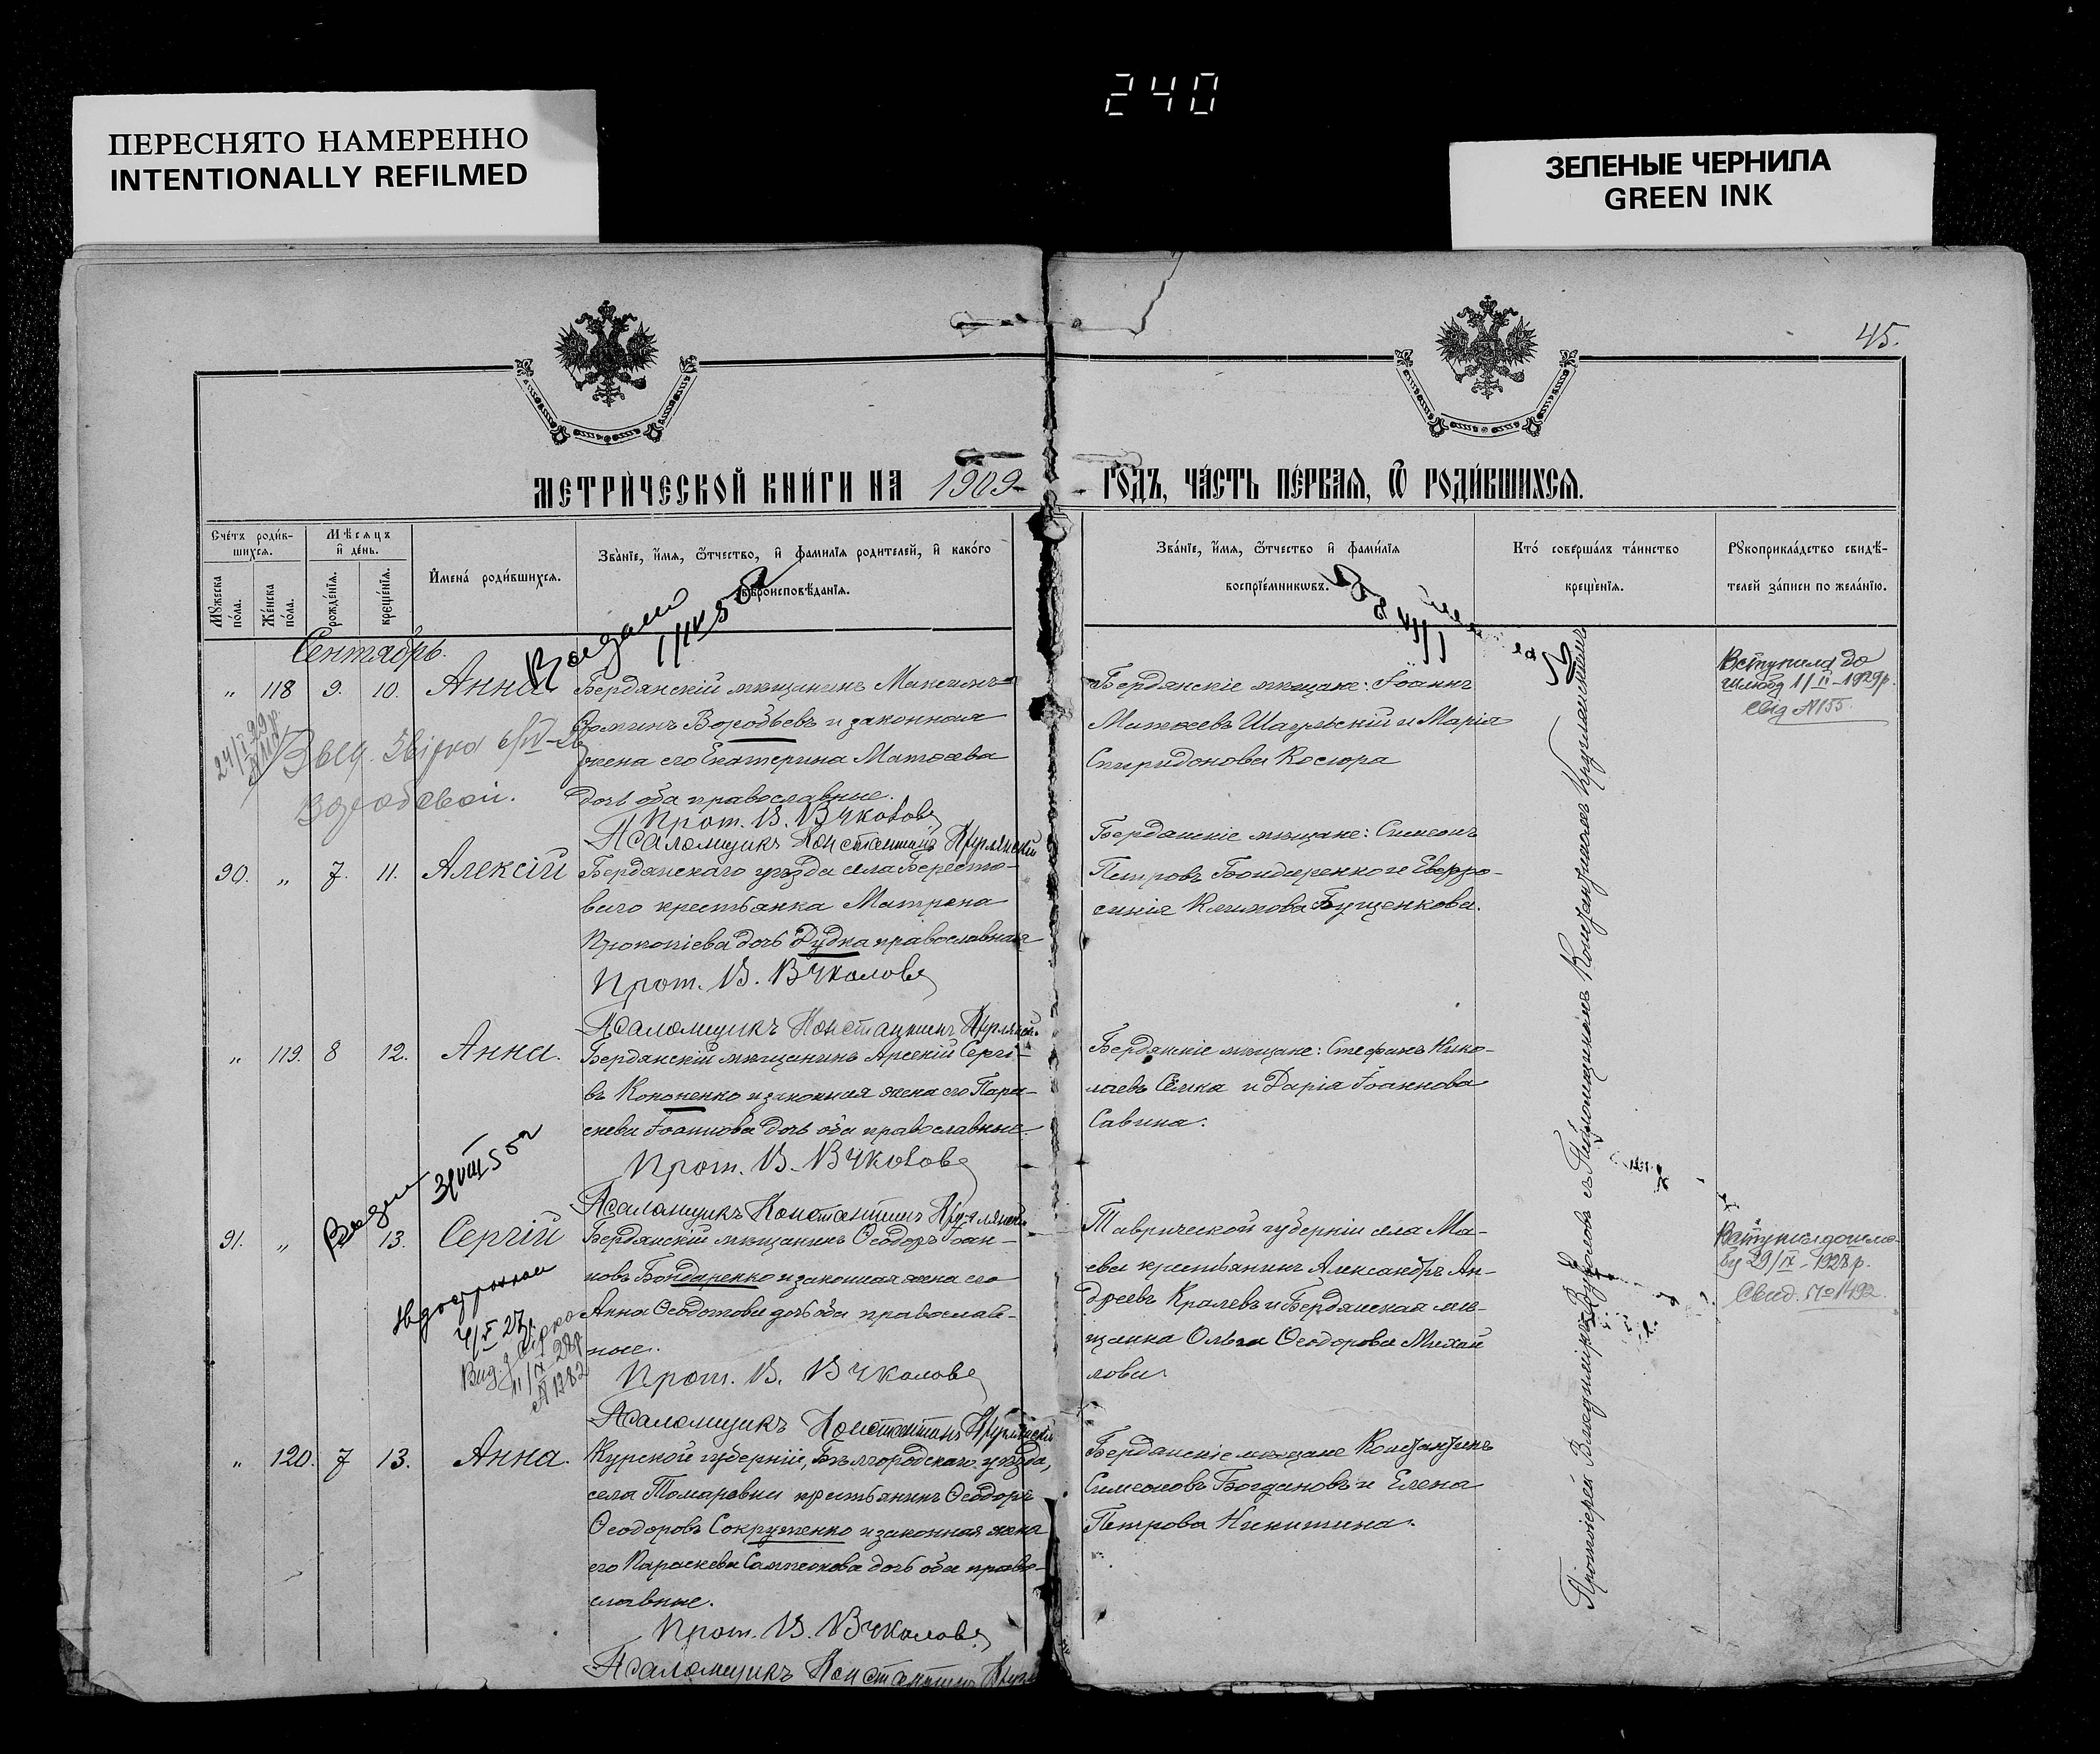 240
ПЕРЕСНЯТО НАМЕРЕННО
INTENTIONALLY REFILMED
ЗЕЛЕНЫЕ ЧЕРНИЛА
GREEN INK
45.
МЕТРИЧЕСКОЙ КНИГИ НА 1909 ГОДЪ, ЧАСТЬ ПЕРВАЯ, Ѿ РОДИВШИХСЯ.
Счетъ родив-
шихся.
Мѣсяцъ
и день.
Мужеска
пола.
Женска
пола.
рожденія.
крещенія.
Имена родившихся.
Званіе, имя, ѿтчество, и фамилія родителей, и какого
вѣроисповѣданія.
Званіе, имя, ѿтчество и фамилія
воспріемниковъ.
Кто совершалъ таинство
крещенія.
Рукоприкладство свидѣ-
телей записи по желанію.
Сентябрь.
„ 118 9. 10. Анна
Бердянскій мѣщанинъ
Ѳоминъ Воробьевъ и законная
жена его Екатерина Матѳеева
дочь оба православные.
Прот. В. Вуколовъ
Псаломщикъ Константинъ
Бердянскіе мѣщане: Іоаннъ
Матѳеевъ и Марія
Спиридонова Косюра
Вступила до
шлюбу 1/II-1929р.
Свід №155.
90. „ 7. 11. Алексій
Бердянскаго уѣзда села Бересто-
ваго крестьянка Матрона
Прокопіева дочь Дудка православная
Прот. В. Вуколовъ
Псаломщикъ Константинъ
Бердянскіе мѣщане: Симеонъ
Петровъ Бондаренко и Евфро-
синія Климова Бущенкова.
„ 119. 8 12. Анна.
Бердянскій мѣщанинъ Арсеній Сергі-
въ Кононенко и законная жена его Пара-
скева Іоаннова дочь оба православные.
Прот. В. Вуколовъ
Псаломщикъ Константинъ
Бердянскіе мѣщане: Стефанъ Нико-
лаевъ Сѣмка и Дарія Іоаннова
Савина.
91. „ 13. Сергій
Бердянскій мѣщанинъ Ѳеодоръ Іоан-
новъ Бондаренко и законная жена его
Анна Ѳеодотова дочь оба православ-
ные.
Прот. В. Вуколовъ
Псаломщикъ Константинъ
Таврической губерніи села Ма-
крестьянинъ Александръ Ан-
дреевъ Кралевъ и Бердянская мѣ-
щанка Ольга Ѳеодорова Михай
лова.
29/IX-1928р.
Свид. №1492.
„ 120. 7 13. Анна.
Курской губерніи, Бѣлгородскаго уѣзда,
села Томаровки крестьянинъ Ѳеодоръ
Ѳеодоровъ Сокрутенко и законная жена
его Параскева Сампсонова дочь оба право-
славные.
Прот. В. Вуколовъ
Псаломщикъ Константинъ
Бердянскіе мѣщане Константинъ
Симеоновъ Богдановъ и Елена
Петрова Никитина.
Протоіерей Владиміръ Вуколовъ съ Псаломщикомъ Константиномъ